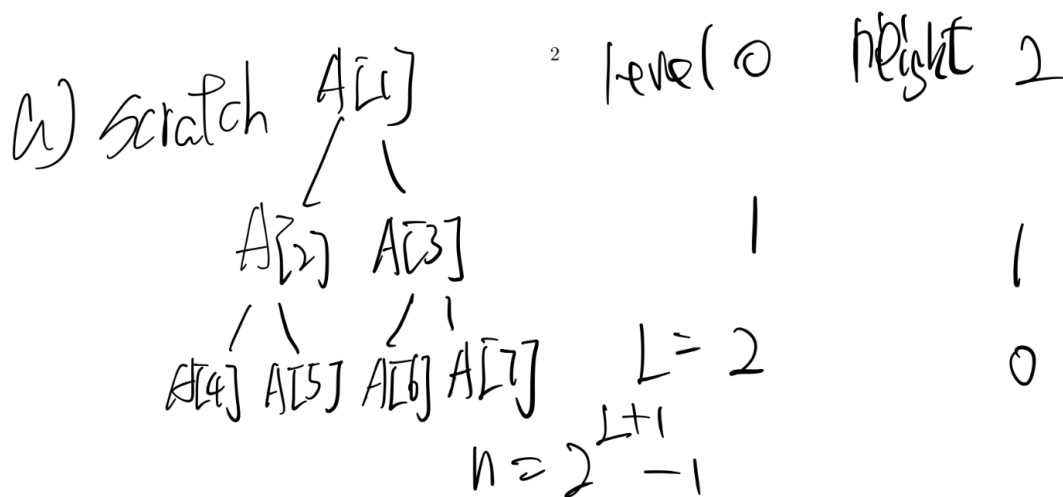 2
a) scratch A[1] level 0 height 2
A[2] A[3] 1 1
A[4] A[5] A[6] A[7] L = 2 0
n = 2^{L+1} - 1